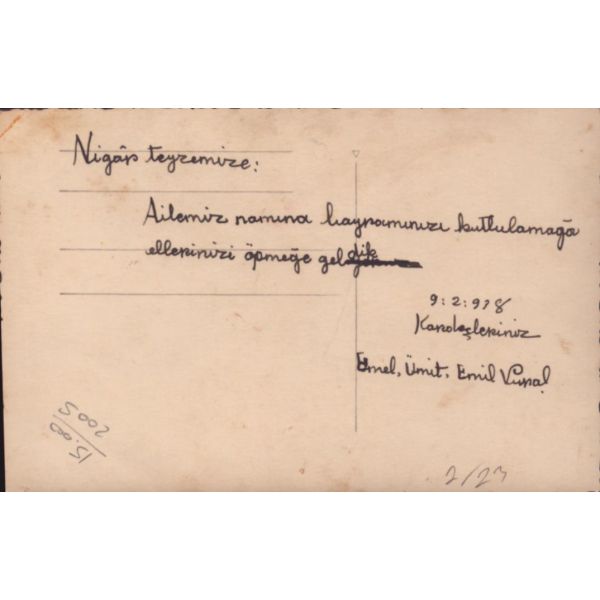 Nigâr teyzemize:
Ailemiz namına bayramınızı kutlulamağa
ellerinizi öpmeğe geldik
9:2:938
Kardeşleriniz
Emel, Ümit, Emil Vural
15.00
2005
2/23